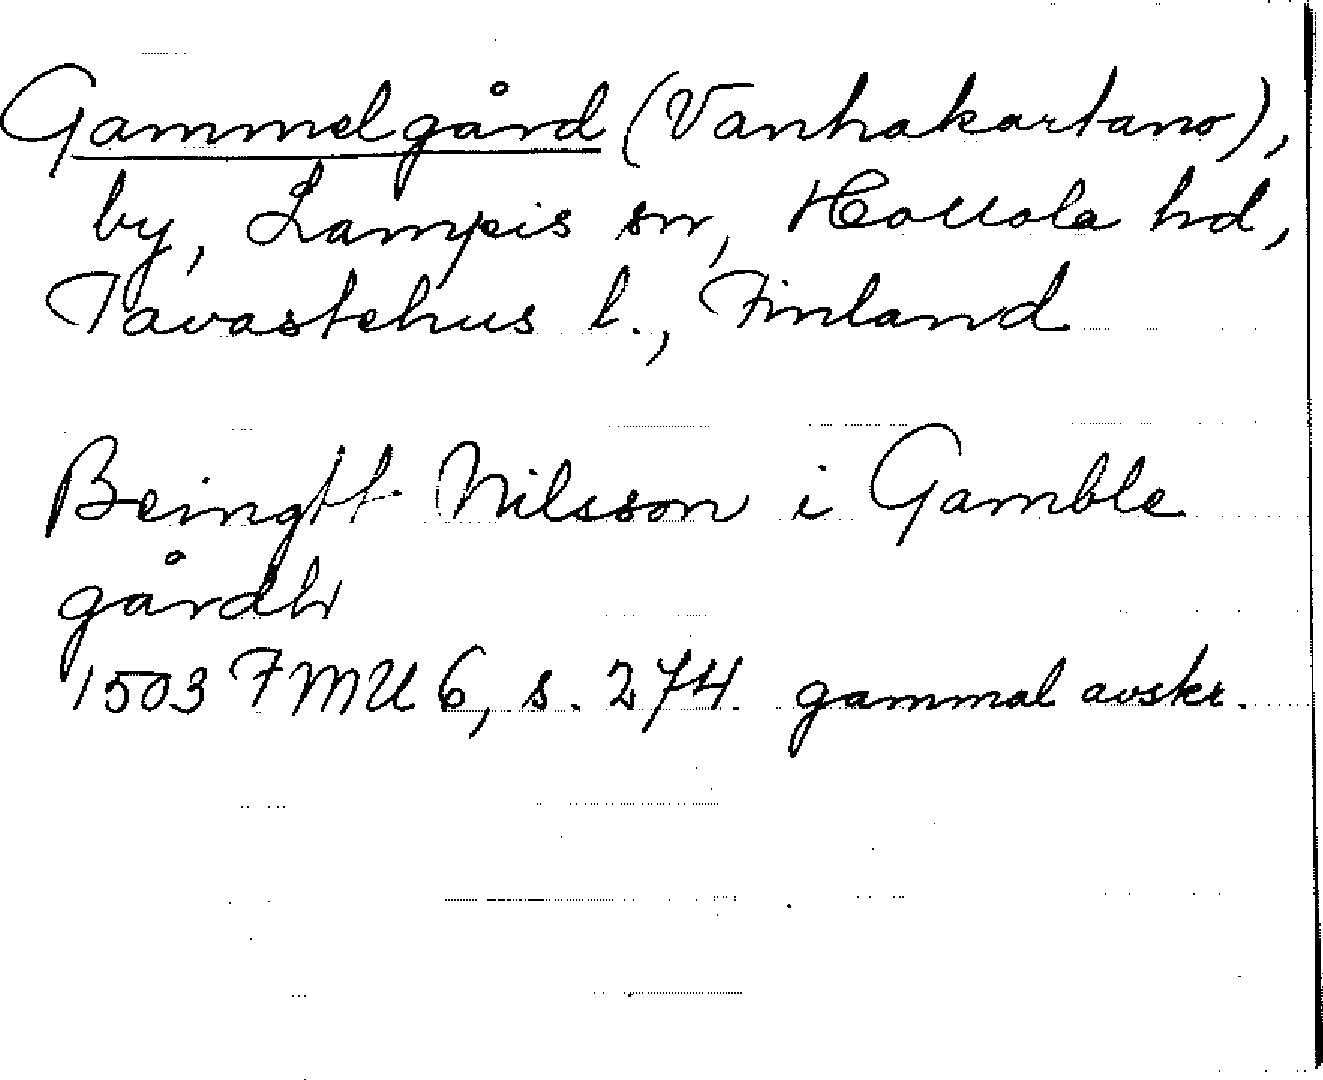 Gammelgård (Vanhakartano),
by, Lampis sn, Hollola hd,
Tavastehus l., Finland
Beingtt Nilsson i Gamble
gårdh
1503 FMU 6, s. 274. gammal avskr.